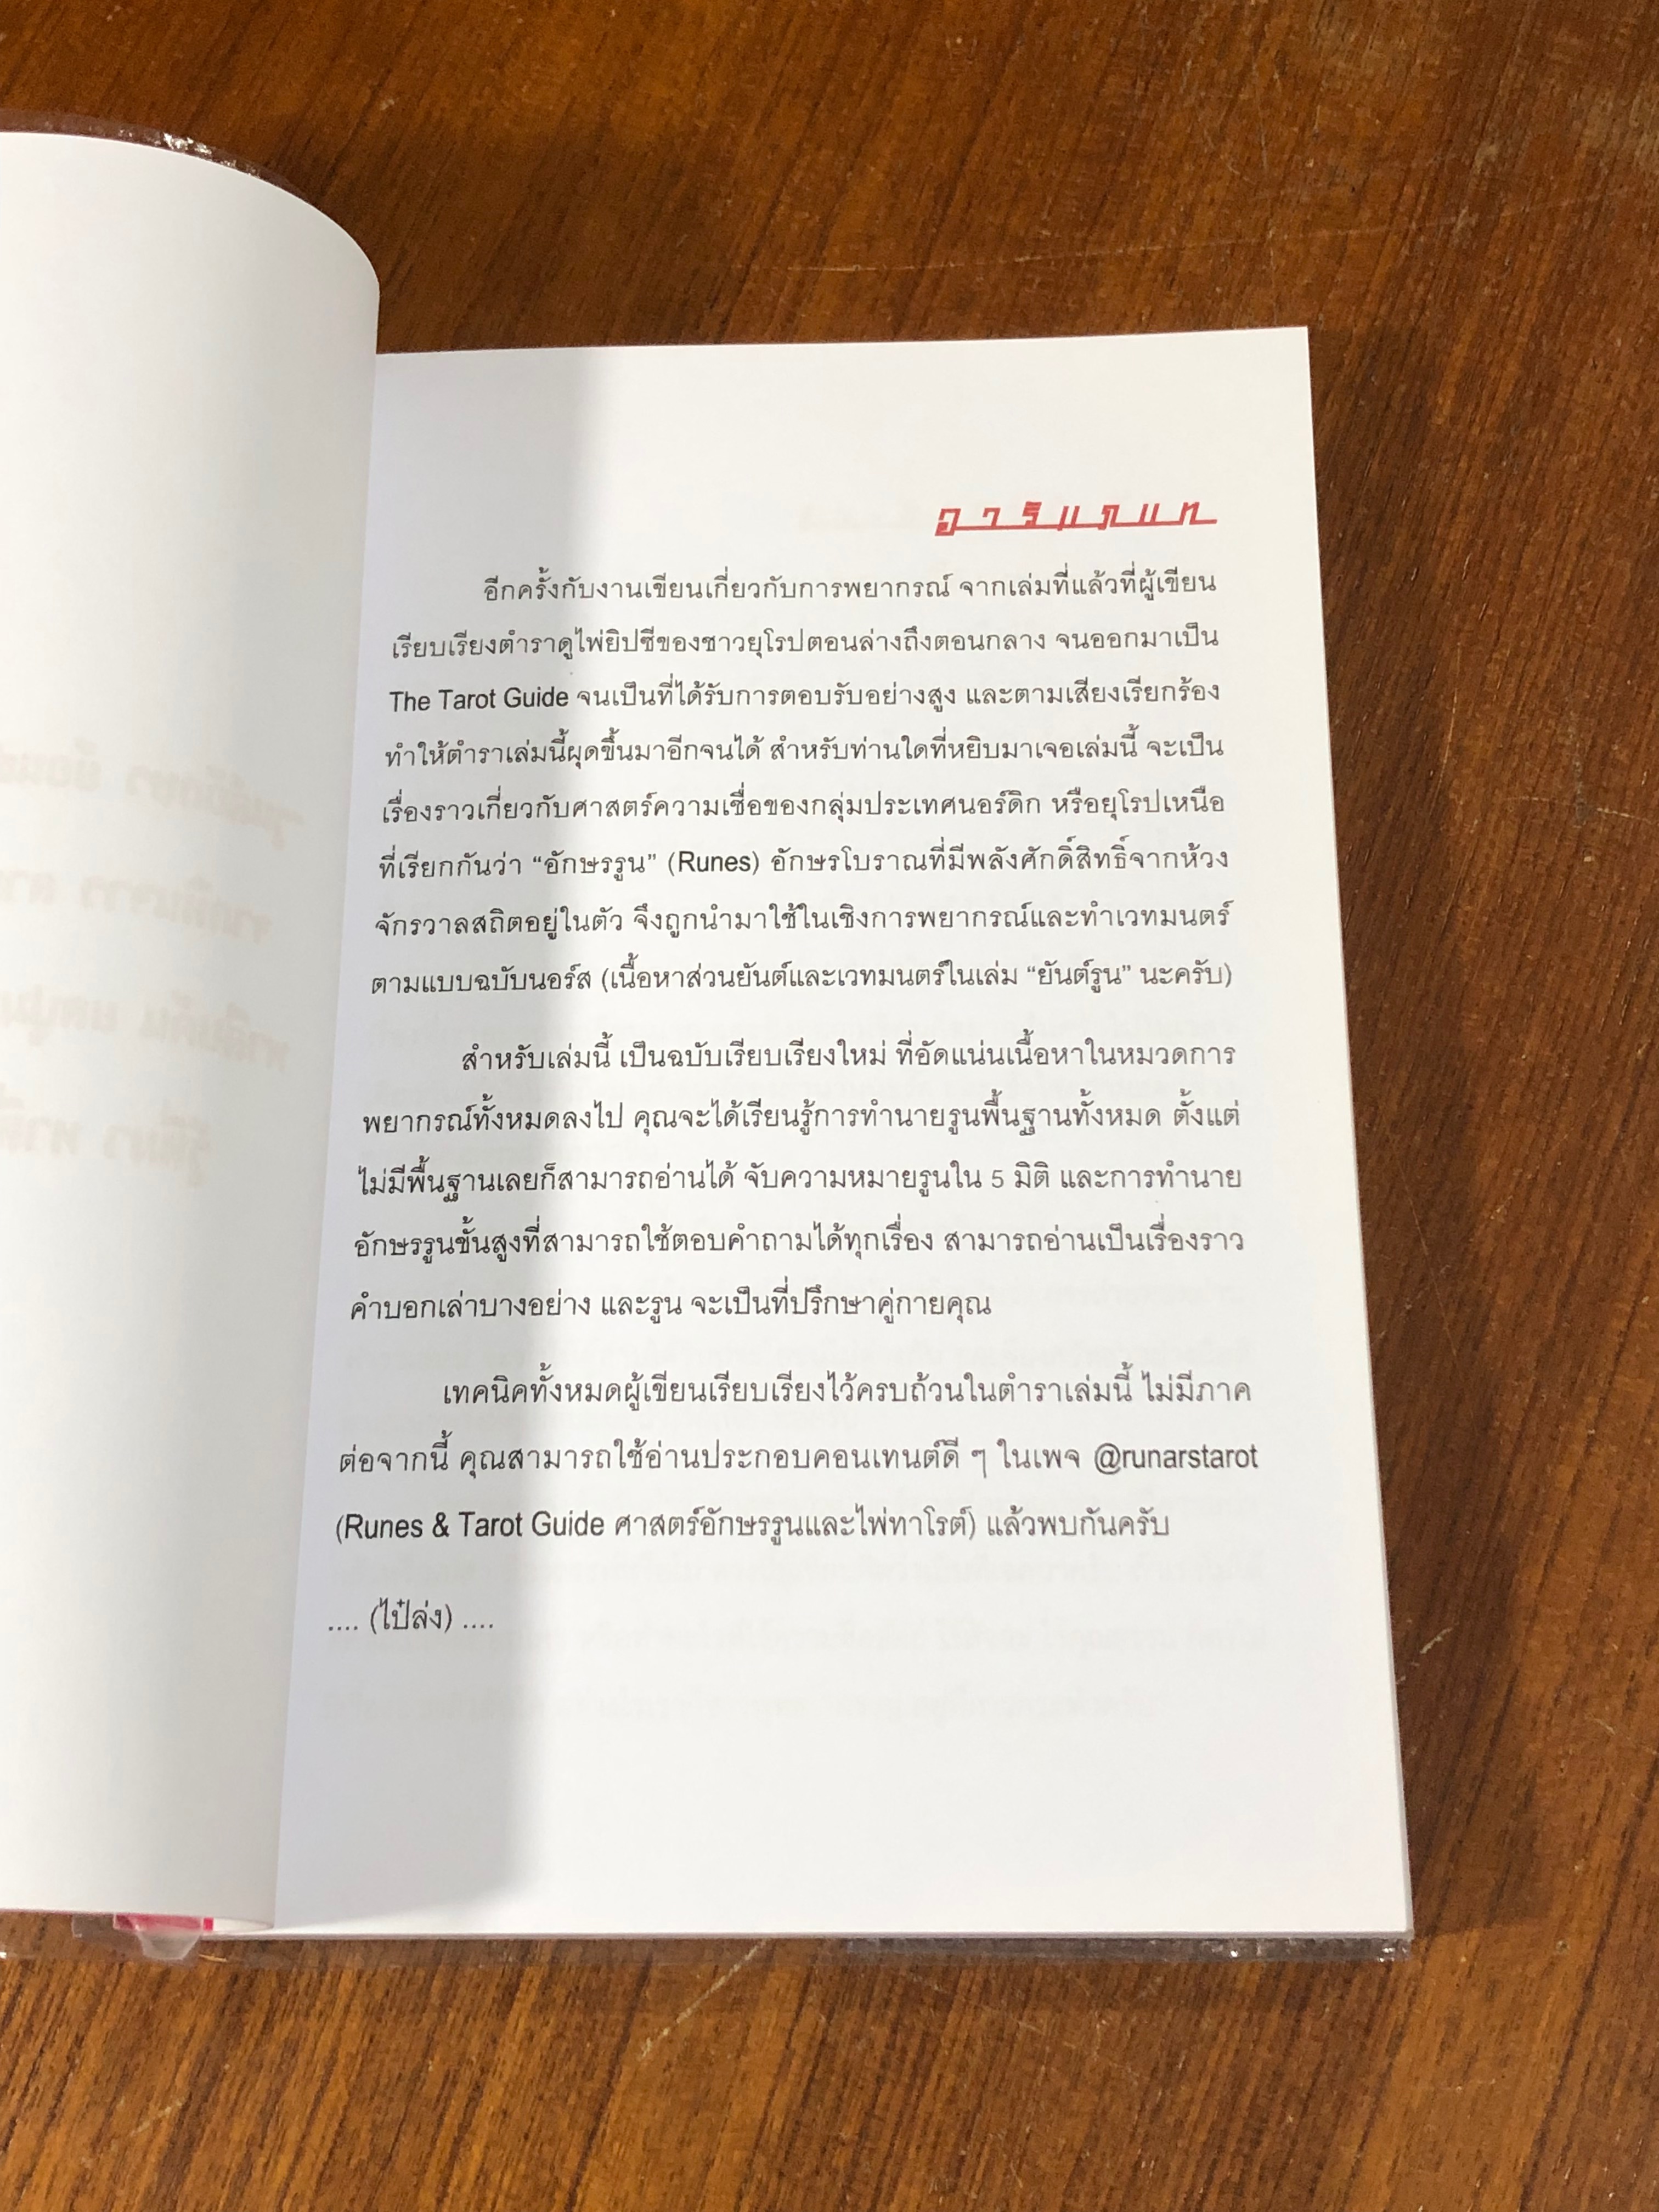 อารัมภบท
อีกครั้งกับงานเขียนเกี่ยวกับการพยากรณ์ จากเล่มที่แล้วที่ผู้เขียน
เรียบเรียงตำราดูไพ่ยิปซีของชาวยุโรปตอนล่างถึงตอนกลาง จนออกมาเป็น
The Tarot Guide จนเป็นที่ได้รับการตอบรับอย่างสูง และตามเสียงเรียกร้อง
ทำให้ตำราเล่มนี้ผุดขึ้นมาอีกจนได้ สำหรับท่านใดที่หยิบมาเจอเล่มนี้ จะเป็น
เรื่องราวเกี่ยวกับศาสตร์ความเชื่อของกลุ่มประเทศนอร์ดิก หรือยุโรปเหนือ
ที่เรียกกันว่า “อักษรรูน” (Runes) อักษรโบราณที่มีพลังศักดิ์สิทธิ์จากห้วง
จักรวาลสถิตอยู่ในตัว จึงถูกนำมาใช้ในเชิงการพยากรณ์และทำเวทมนตร์
ตามแบบฉบับนอร์ส (เนื้อหาส่วนยันต์และเวทมนตร์ในเล่ม “ยันต์รูน” นะครับ)
สำหรับเล่มนี้ เป็นฉบับเรียบเรียงใหม่ ที่อัดแน่นเนื้อหาในหมวดการ
พยากรณ์ทั้งหมดลงไป คุณจะได้เรียนรู้การทำนายรูนพื้นฐานทั้งหมด ตั้งแต่
ไม่มีพื้นฐานเลยก็สามารถอ่านได้ จับความหมายรูนใน 5 มิติ และการทำนาย
อักษรรูนขั้นสูงที่สามารถใช้ตอบคำถามได้ทุกเรื่อง สามารถอ่านเป็นเรื่องราว
คำบอกเล่าบางอย่าง และรูน จะเป็นที่ปรึกษาคู่กายคุณ
เทคนิคทั้งหมดผู้เขียนเรียบเรียงไว้ครบถ้วนในตำราเล่มนี้ ไม่มีภาค
ต่อจากนี้ คุณสามารถใช้อ่านประกอบคอนเทนต์ดี ๆ ในเพจ @runarstarot
(Runes & Tarot Guide ศาสตร์อักษรรูนและไพ่ทาโรต์) แล้วพบกันครับ
.... (ไป๋ล่ง) ....